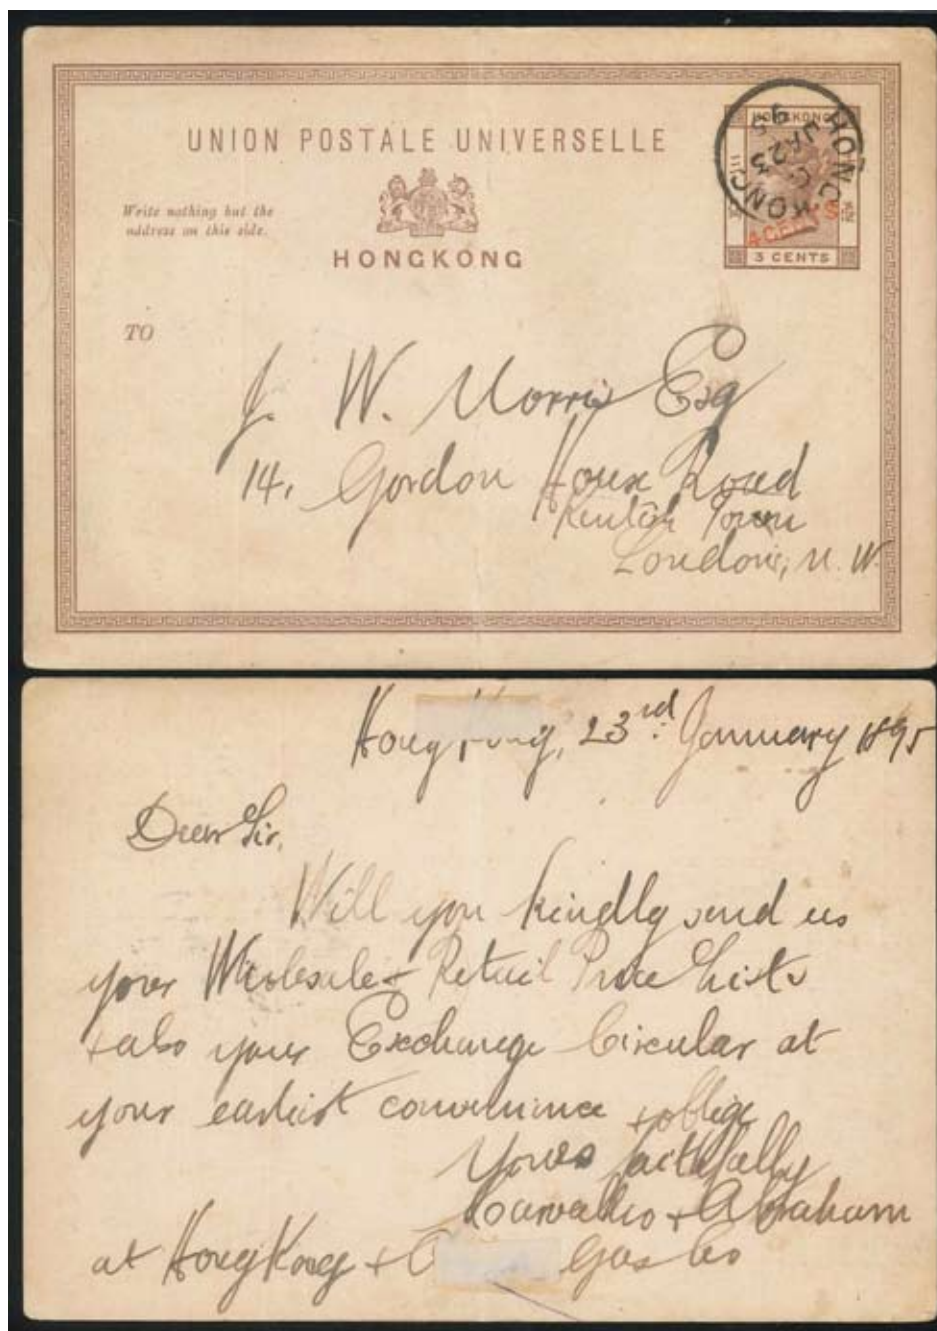 UNION POSTALE UNIVERSELLE
Write nothing but the
address on this side.
HONGKONG
HONGKONG
3 CENTS
4 CENTS
HONG KONG
C
JA 23
95
TO
J. W. Morris Esq
14, Gordon House Road
Kentish Town
London, N. W.
Hong Kong, 23rd January 1895
Dear Sir,
Will you kindly send us
your Wholesale + Retail Price Lists
+ also your Exchange Circular at
your earliest convenience + oblige
Yours faithfully
Carvalho + Abraham
at Hong Kong + Gas Co